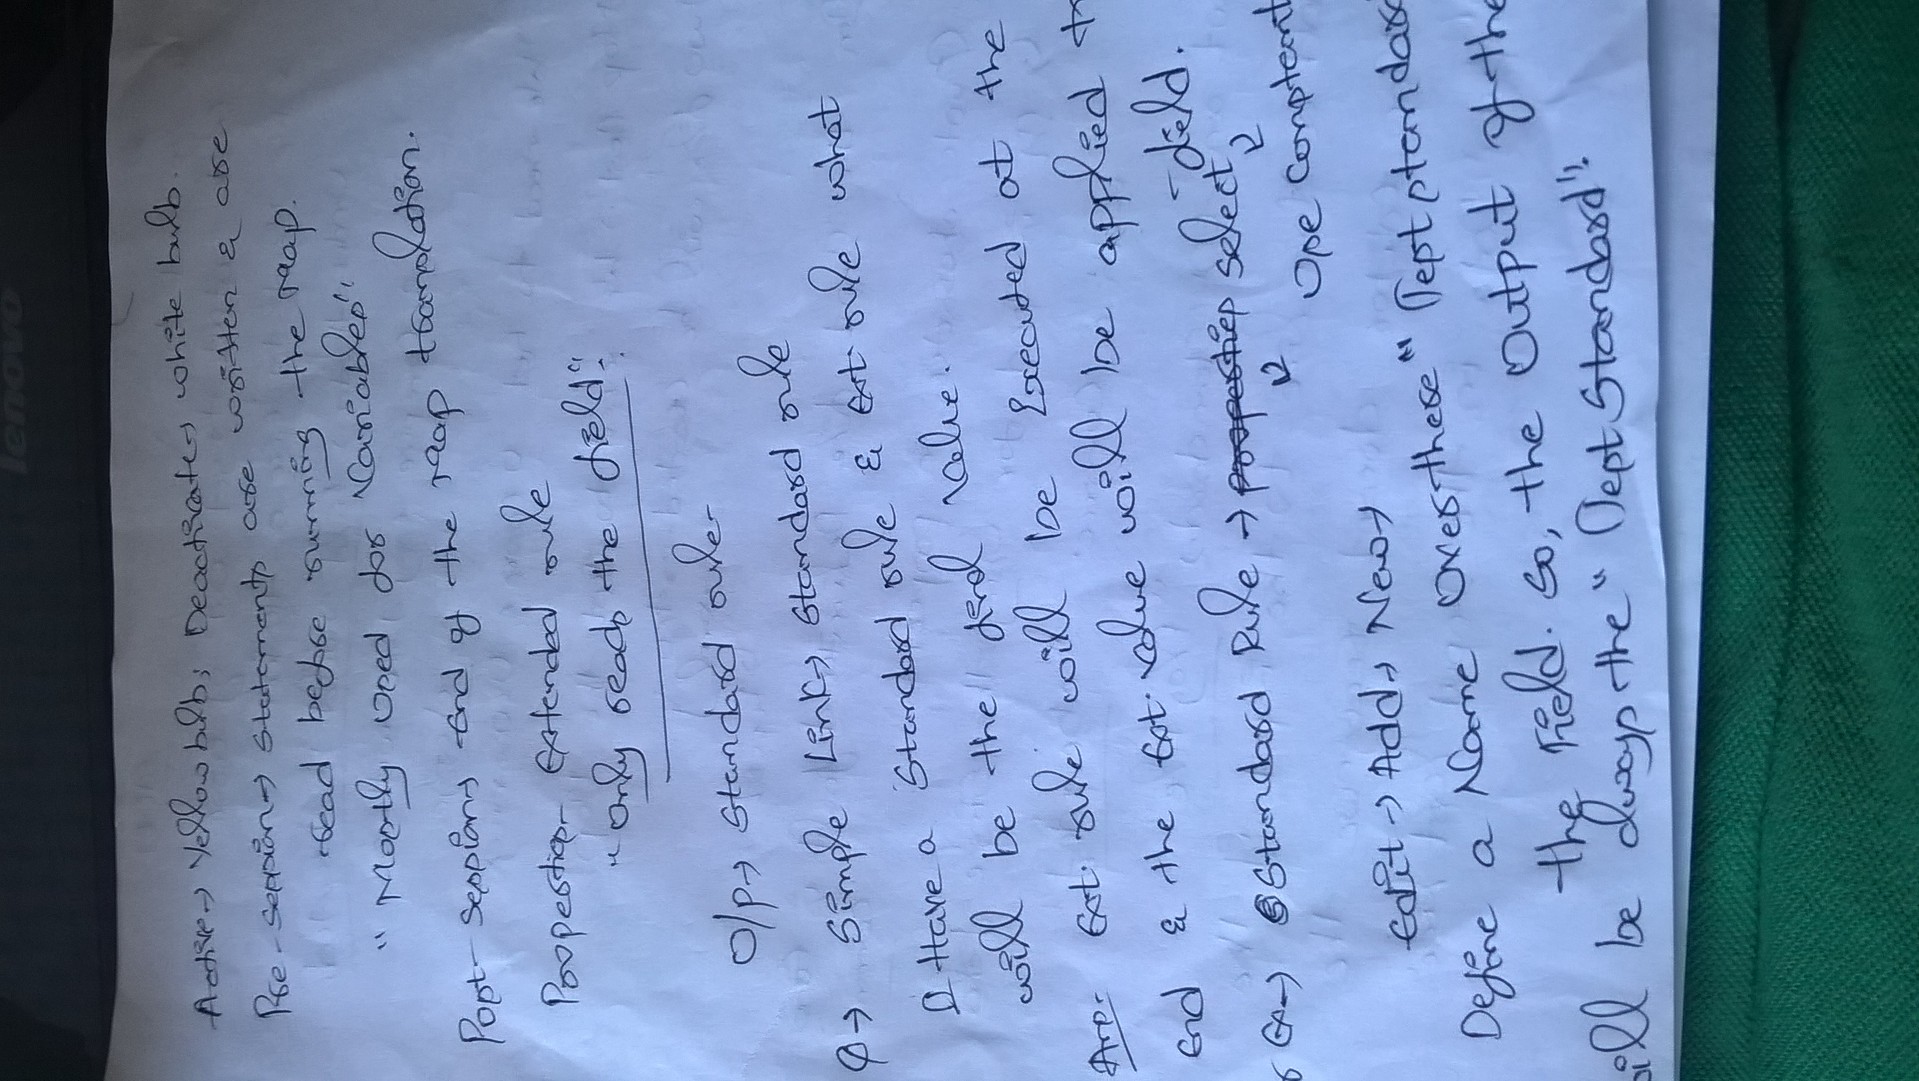 lenovo
Active → Yellow bulb; Deactivate → white bulb.
Pre-session → Statements are written & are
read before running the map.
"Mostly used for Variables".
Post-session → End of the map translation.
Properties - Extended rule
"only reads the field".
O/P → Standard rule -
Q → Simple Link → Standard rule
I Have a Standard rule & Ext rule what
will be the find value.
Ans: Ext. rule will be Executed at the
End & the Ext. value will be applied
field.
Ex → Standard Rule → properties select
↓ ↓
Use constant
Edit → Add → New →
Define a Name over there "Test standard
the Field. So, the Output of the
will be always the "Test Standard".